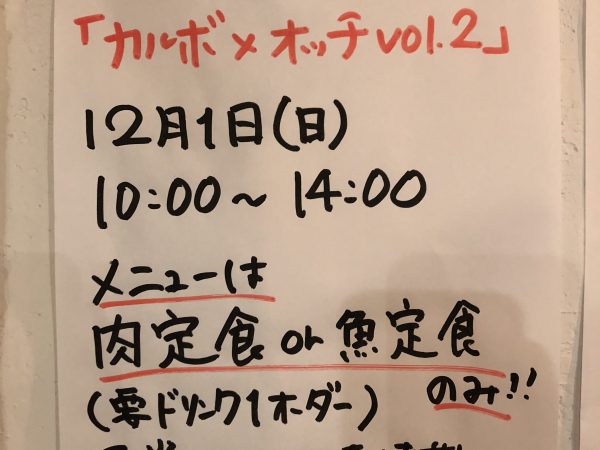 「カルボ×オッチvol.2」
12月1日(日)
10:00~14:00
メニューは
肉定食or魚定食
のみ!!
(要ドリンク1オーダー)